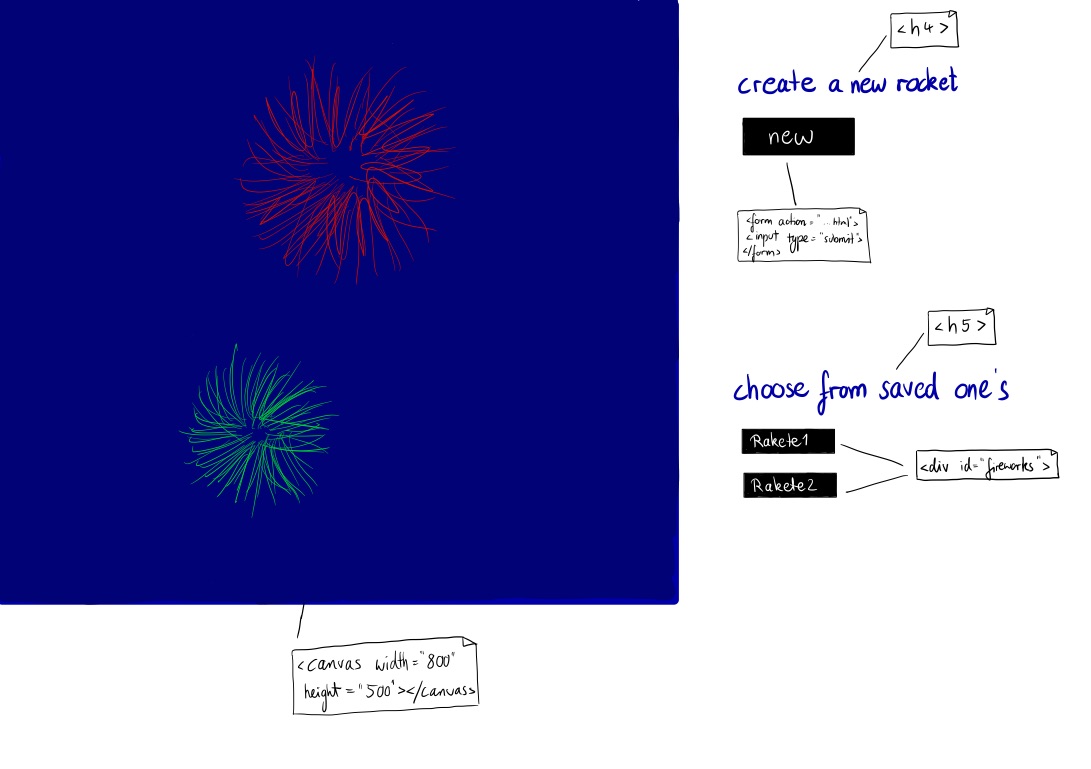 <h4>
create a new rocket
new
<form action="...html">
<input type="submit">
</form>
<h5>
choose from saved one's
Rakete1
Rakete2
<div id="fireworks">
<canvas width="800"
height="500"></canvas>